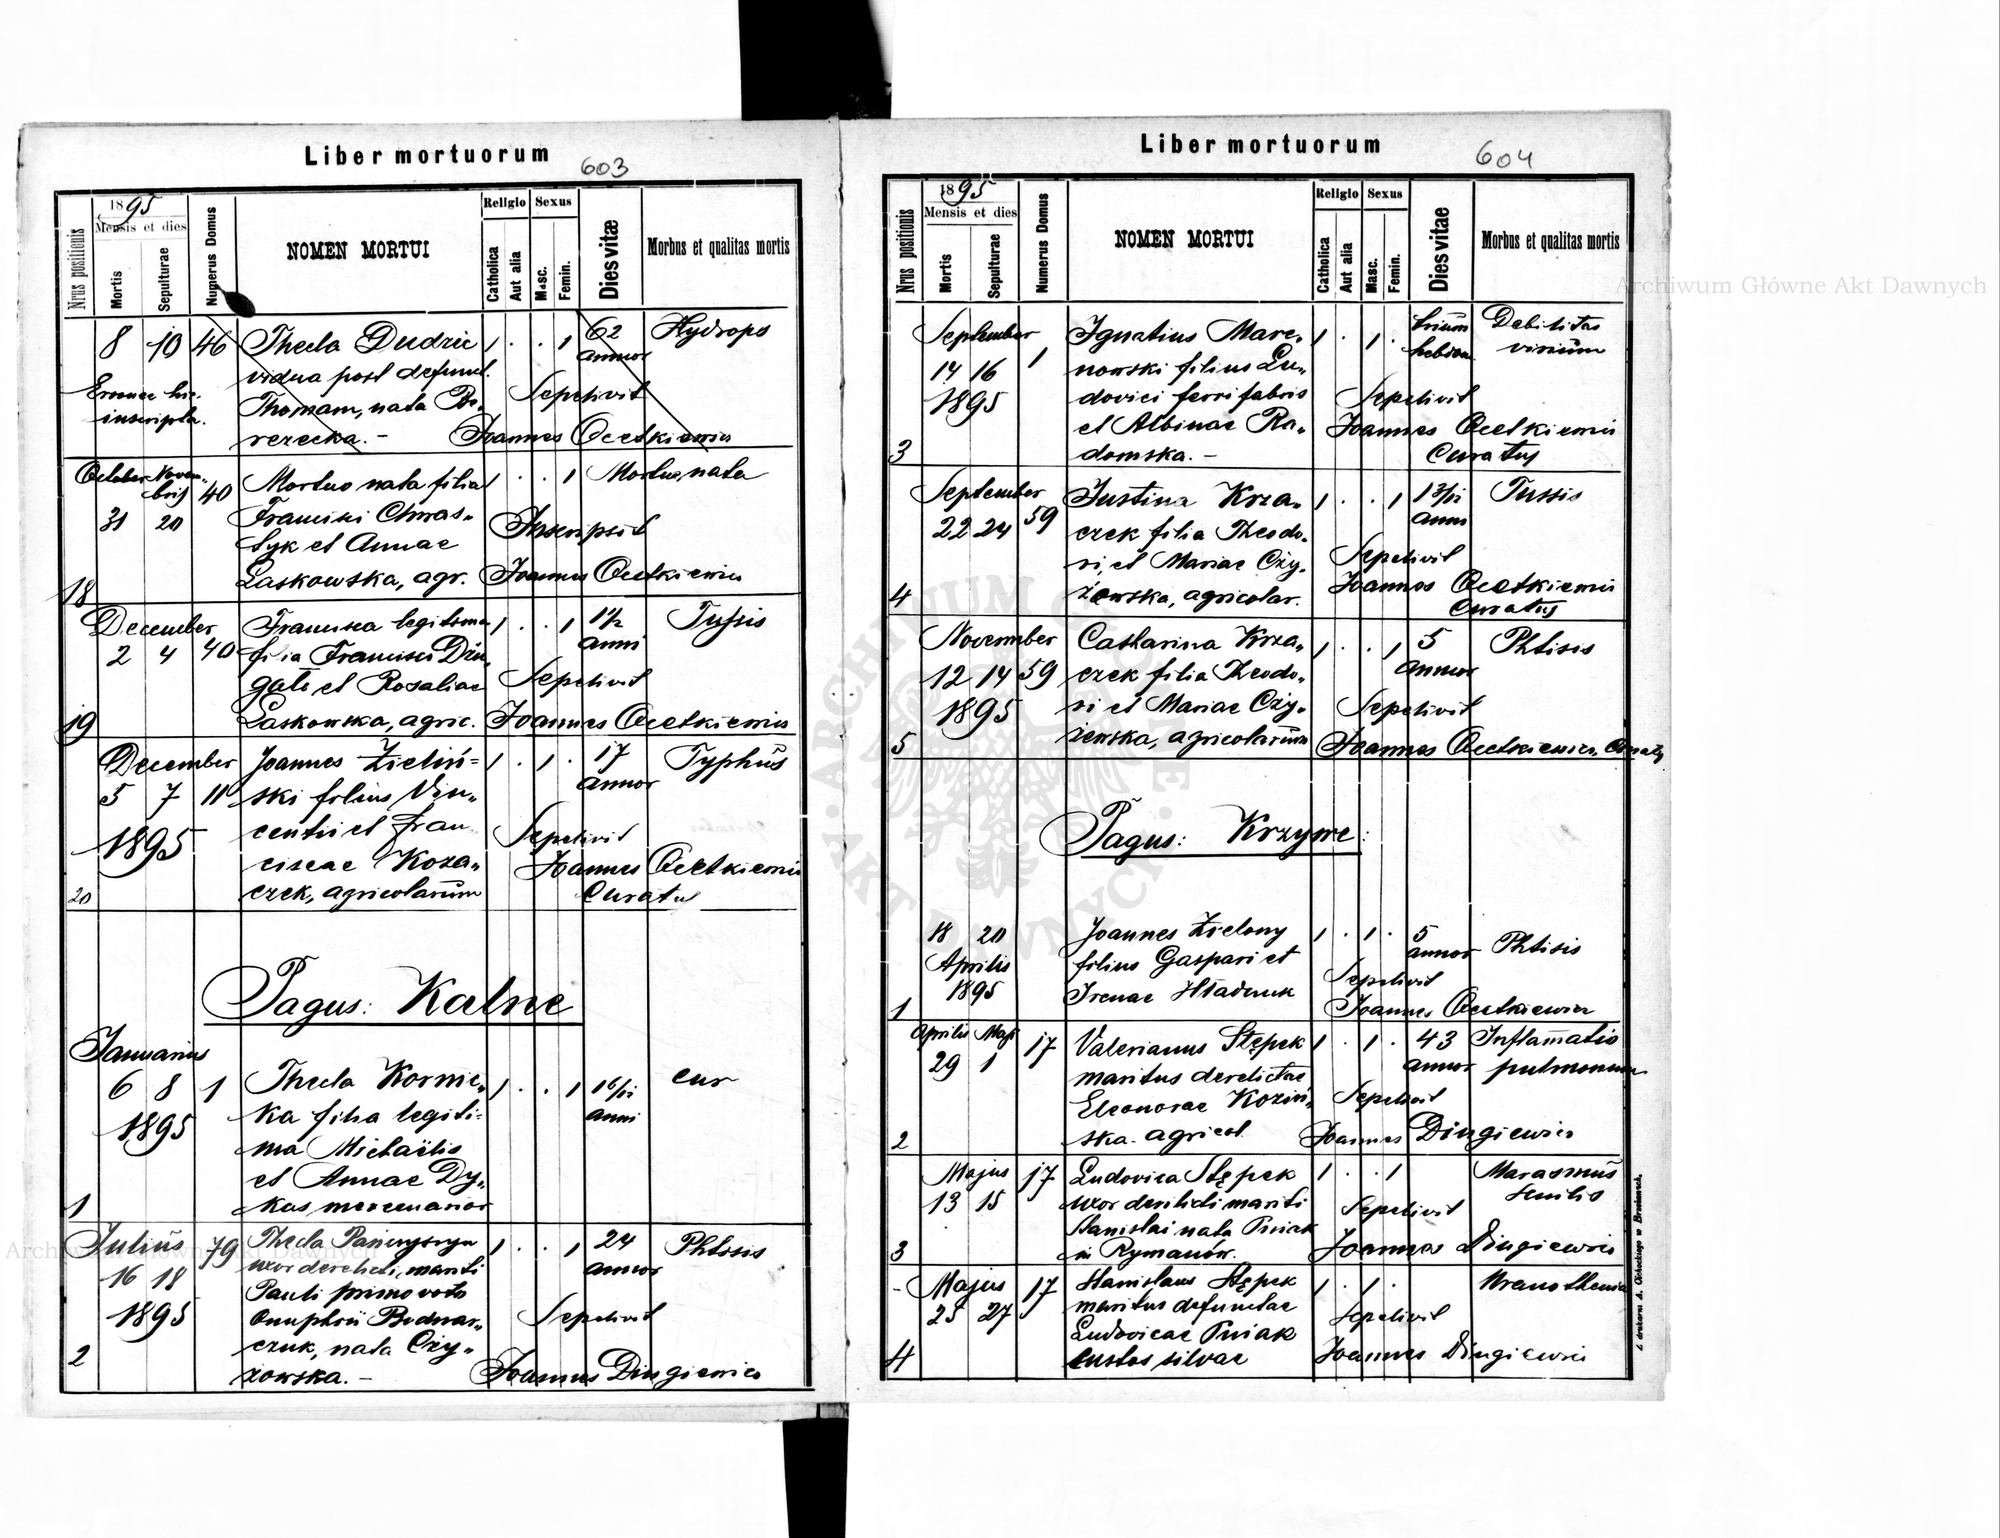 Liber mortuorum
603
Nrus positionis
1895
Mensis et dies
Mortis
Sepulturae
Numerus Domus
NOMEN MORTUI
Religio
Catholica
Aut alia
Sexus
Masc.
Femin.
Dies vitæ
Morbus et qualitas mortis
8 10 46 Thecla Dudzic 1 . . 1 62 Hydrops
vidua post defunct. annor
Erronee hic Thomam, nata Bo- Sepelivit
inscripta. rezecka. - Joannes Ocetkiewicz
October Novem-
bris 40 Mortuo nata filia 1 . . 1 Mortuo nata
31 20 Francisci Chwas-
tyk et Annae Inscripsit
18 Laskowska, agr. Joannes Ocetkiewicz
December Francisca legitima 1 . . 1 1 1/2 Tussis
2 4 40 filia Francisci Dżu- anni
gałe et Rosaliae Sepelivit
19 Laskowska, agric. Joannes Ocetkiewicz
December Joannes Zieliń- 1 . 1 . 17 Typhus
5 7 11 ski filius Vin- annor
1895 centii et Fran- Sepelivit
ciscae Koza- Joannes Ocetkiewicz
20 czek, agricolarum Curatus
Pagus: Kalne
Januarius
6 8 1 Thecla Kornic- 1 . . 1 1 6/12
1895 ka filia legiti- anni
ma Michaëlis
et Annae Dy-
1 kas mercenarior
Julius 79 Thecla 1 . . 1 24 Phtisis
16 18 uxor derelicti mariti annor
1895 Pauli primo voto
Onuphrii Bodnar- Sepelivit
2 czuk, nata Czy-
żowska. - Joannes Dingiewicz
Liber mortuorum
604
Nrus positionis
1895
Mensis et dies
Mortis
Sepulturae
Numerus Domus
NOMEN MORTUI
Religio
Catholica
Aut alia
Sexus
Masc.
Femin.
Dies vitae
Morbus et qualitas mortis
September Ignatius Mare- 1 . 1 . trium Debilitas
14 16 1 nowski filius Lu- hebdom. virium
1895 dovici ferri fabris Sepelivit
et Albinae Ra- Joannes Ocetkiewicz
3 domska. - Curatus
September Justina Krza- 1 . . 1 1 3/12 Tussis
22 24 59 czek filia Theodo- anni
ri, et Mariae Czy- Sepelivit
4 żewska, agricolar. Joannes Ocetkiewicz
Curatus
November Catharina Krza- 1 . . 1 5 Phtisis
12 14 59 czek filia Theodo- annor
1895 ri et Mariae Czy- Sepelivit
5 żewska, agricolarum Joannes Ocetkiewicz, Curatus
Pagus: Krzywe:
18 20 Joannes Zielony 1 . 1 . 5
Aprilis filius Gaspari et annor Phtisis
1895 Irenae Hładczuk Sepelivit
1 Joannes Ocetkiewicz
Aprilis Maji 17 Valerianus Stępek 1 . 1 . 43 Inflamatio
29 1 maritus derelictae annor pulmonum
Eleonorae Koziń- Sepelivit
2 ska agricol. Joannes Dingiewicz
Majus 17 Ludovica Stępek 1 . . 1 Marasmus
13 15 uxor derelicti mariti Sepelivit senilis
Stanislai nata Pniak
3 in Rymanów. Joannes Dingiewicz
- Majus 17 Stanislaus Stępek 1 . 1 .
25 27 maritus defunctae Sepelivit
Ludovicae Pniak
4 custos silvae Joannes Dingiewicz
Z drukarni A. Cichockiego w Brzeżanach.
Archiwum Główne Akt Dawnych
Archiwum Główne Akt Dawnych